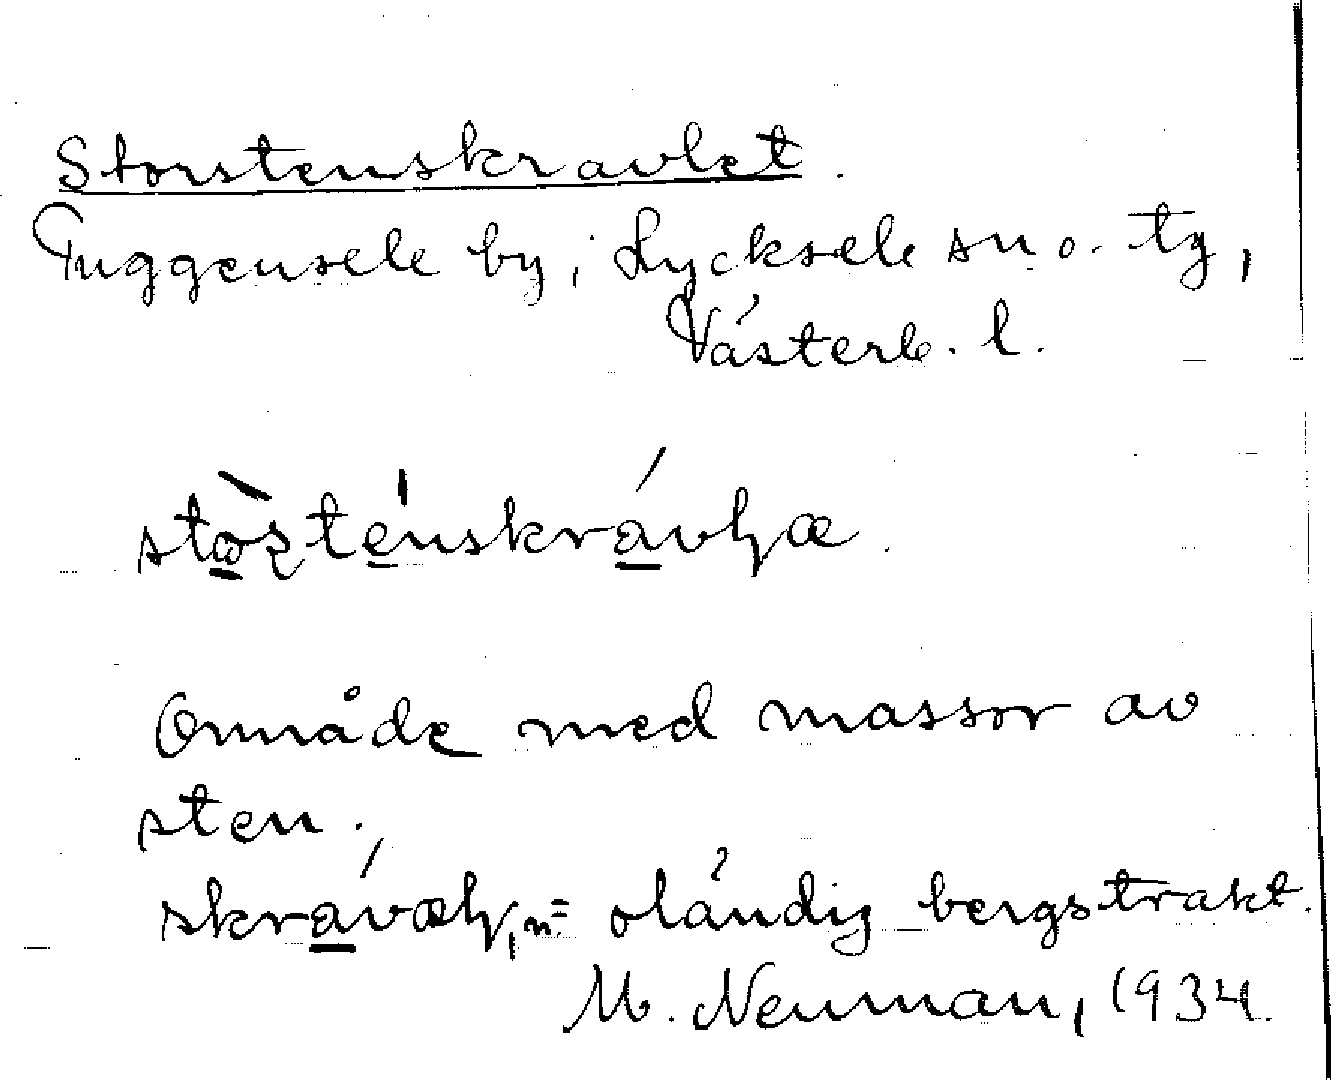 Storstenskravlet.
Tuggensele by, Lycksele sn o. tg,
Västerb. l.
Område med massor av
sten.
n = oländig bergstrakt.
M. Neuman, 1934.